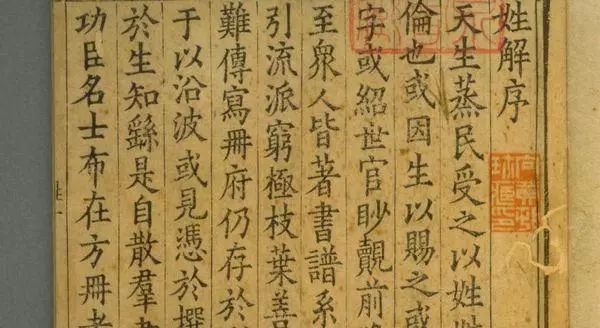 姓解序
天生蒸民受之以姓
倫也或因生以賜之或
字或紹世官眇覿前
至衆人皆著書譜系
引流派窮極枝葉善
難傳寫冊府仍存於
于以沿波或見憑於撰
於生知繇是自散羣書
功臣名士布在方冊者